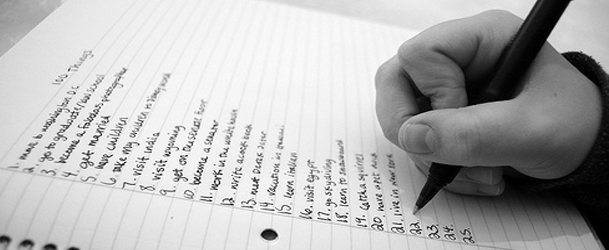 100 Things
1. move to washington D.C.
2. go to graduate/law school
3. become a fabulous photographer
4. get married
5. have children
6. take my children to disney world
7. visit india
8. visit wyoming
9. get on the senate floor
10. become a senator
11. work in the white house
12. write a cook book
13. meet Derek Jeter
14. vacation in hawaii
15. learn italian
16. visit Egypt
17. go skydiving
18. learn to snowboard
19.
20. have
21. live in new york
22.
23.
24.
25.